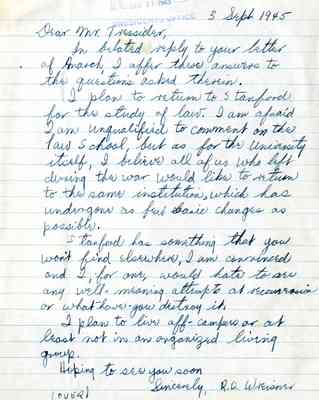 PRESIDENT'S OFFICE
3 Sept 1945
Dear Mr. Tressider,
In belated reply to your letter
of March, I offer these answers to
the questions asked therein.
I plan to return to Stanford
for the study of law. I am afraid
I am unqualified to comment on the
law School, but as for the University
itself, I believe all of us who left
during the war would like to return
to the same institution, which has
undergone as few basic changes as
possible.
Stanford has something that you
won't find elsewhere, I am convinced
and I, for one, would hate to see
any well-meaning attempts at
or what-have-you destroy it.
I plan to live off-campus or at
least not in an organized living
group.
Hoping to see you soon
Sincerely,
(OVER)